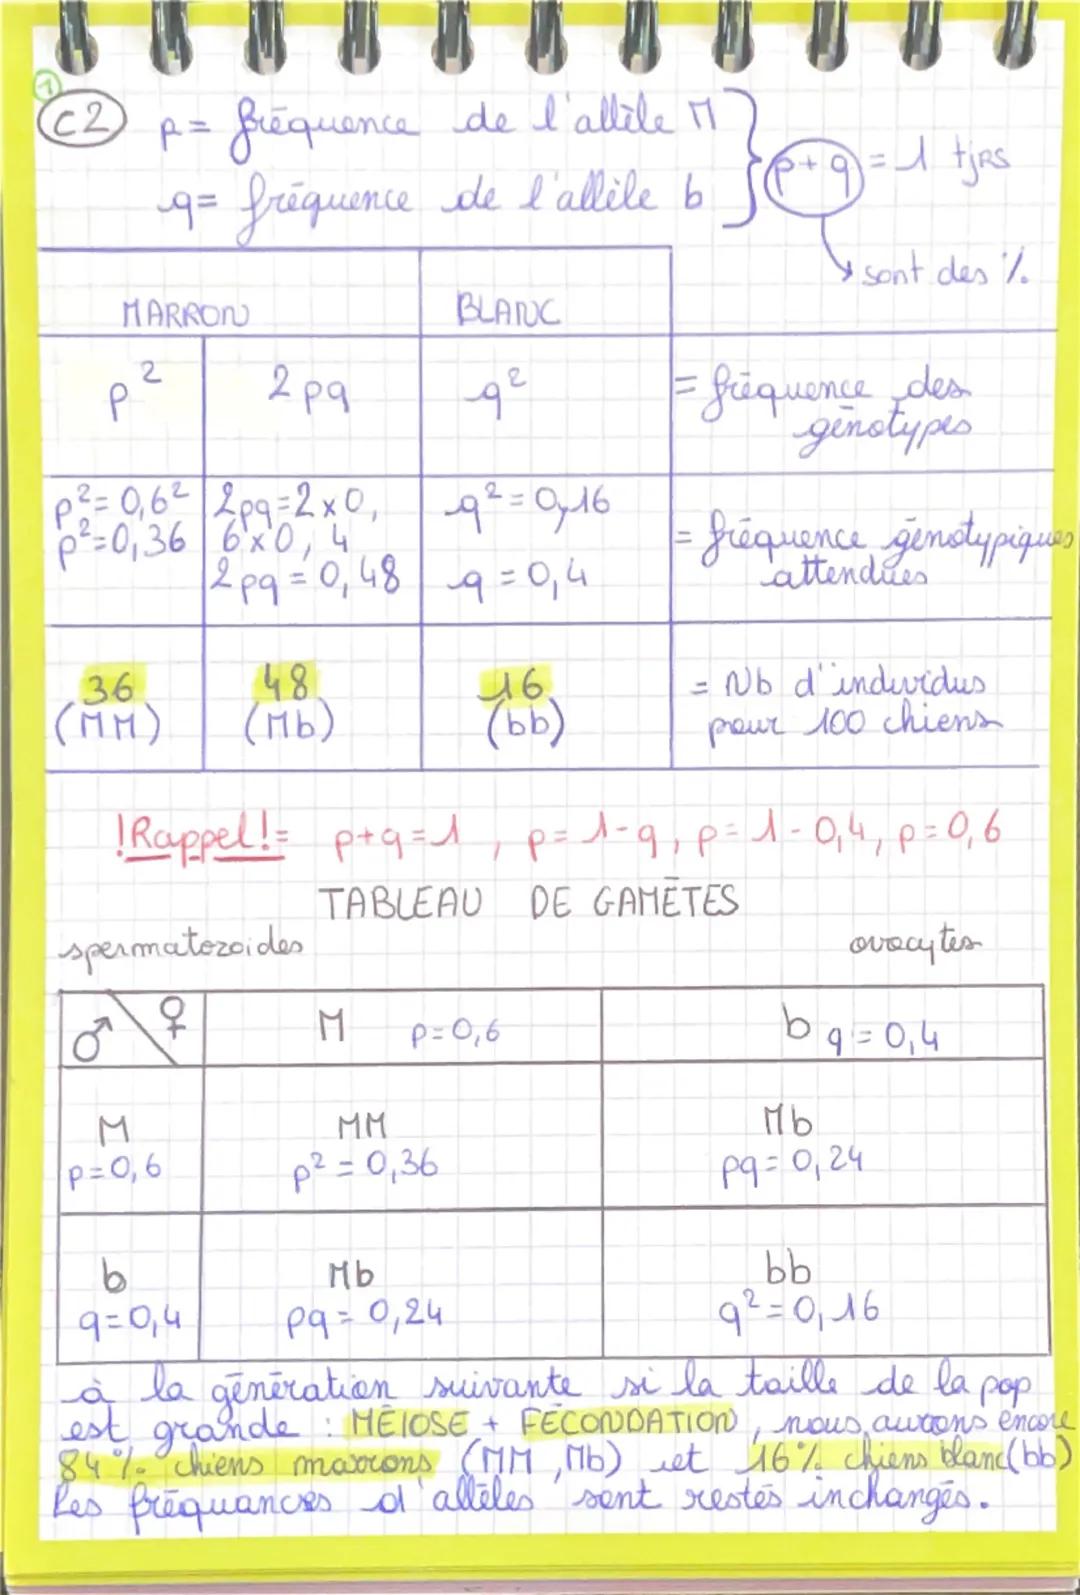 1
C2
p = fréquence de l'allèle M
q = fréquence de l'allèle b
p+q = 1 tjRS
sont des %
MARRON
BLANC
p²
2pq
q²
= fréquence des
génotypes
p² = 0,6²
p² = 0,36
2pq = 2 x 0,
6 x 0, 4
2pq = 0, 48
q² = 0,16
q = 0,4
= fréquence génotypiques
attendues
36
(MM)
48
(Mb)
16
(bb)
= Nb d'individus
pour 100 chiens
! Rappel ! = p+q=1, p=1-q, p=1-0,4, p=0,6
TABLEAU DE GAMÈTES
spermatozoides
ovocytes
♂ ♀
M p=0,6
b q = 0,4
M
p=0,6
MM
p² = 0,36
Mb
pq = 0,24
b
q=0,4
Mb
pq = 0,24
bb
q² = 0, 16
à la génération suivante si la taille de la pop
est grande : MÉIOSE + FÉCONDATION, nous aurons encore
84% chiens marrons (MM, Mb) et 16% chiens blanc (bb)
Les fréquances d'allèles sont restés inchangés.